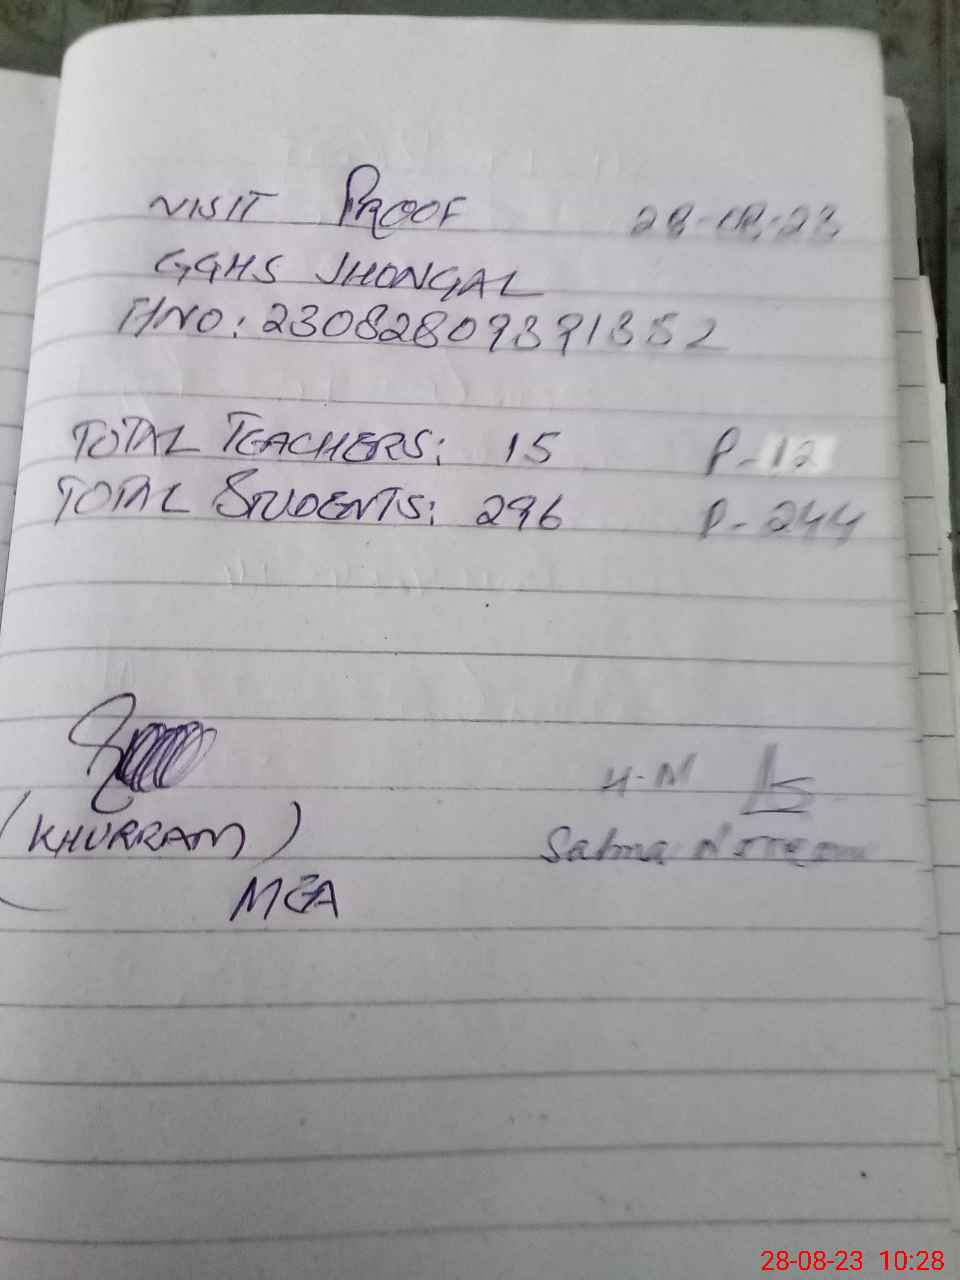 VISIT PROOF 28-08-23
GGHS JHONGAL
F/NO: 23082809391352
TOTAL TEACHERS: 15 P-12
TOTAL STUDENTS: 296 P-244
H-M
(KHURRAM) Salma
MEA
28-08-23 10:28